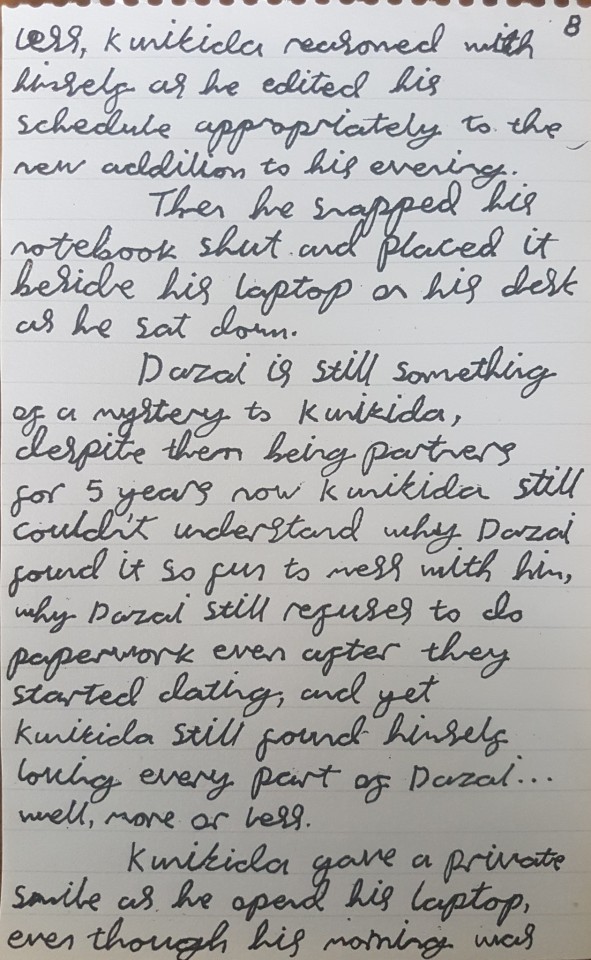 8
less, Kunikida reasoned with
himself as he edited his
schedule appropriately to the
new addition to his evening.
Then he snapped his
notebook shut and placed it
beside his laptop on his desk
as he sat down.
Dazai is still something
of a mystery to Kunikida,
despite them being partners
for 5 years now Kunikida still
couldn't understand why Dazai
found it so fun to mess with him,
why Dazai still refuses to do
paperwork even after they
started dating, and yet
Kunikida still found himself
loving every part of Dazai...
well, more or less.
Kunikida gave a private
smile as he opend his laptop,
even though his morning was